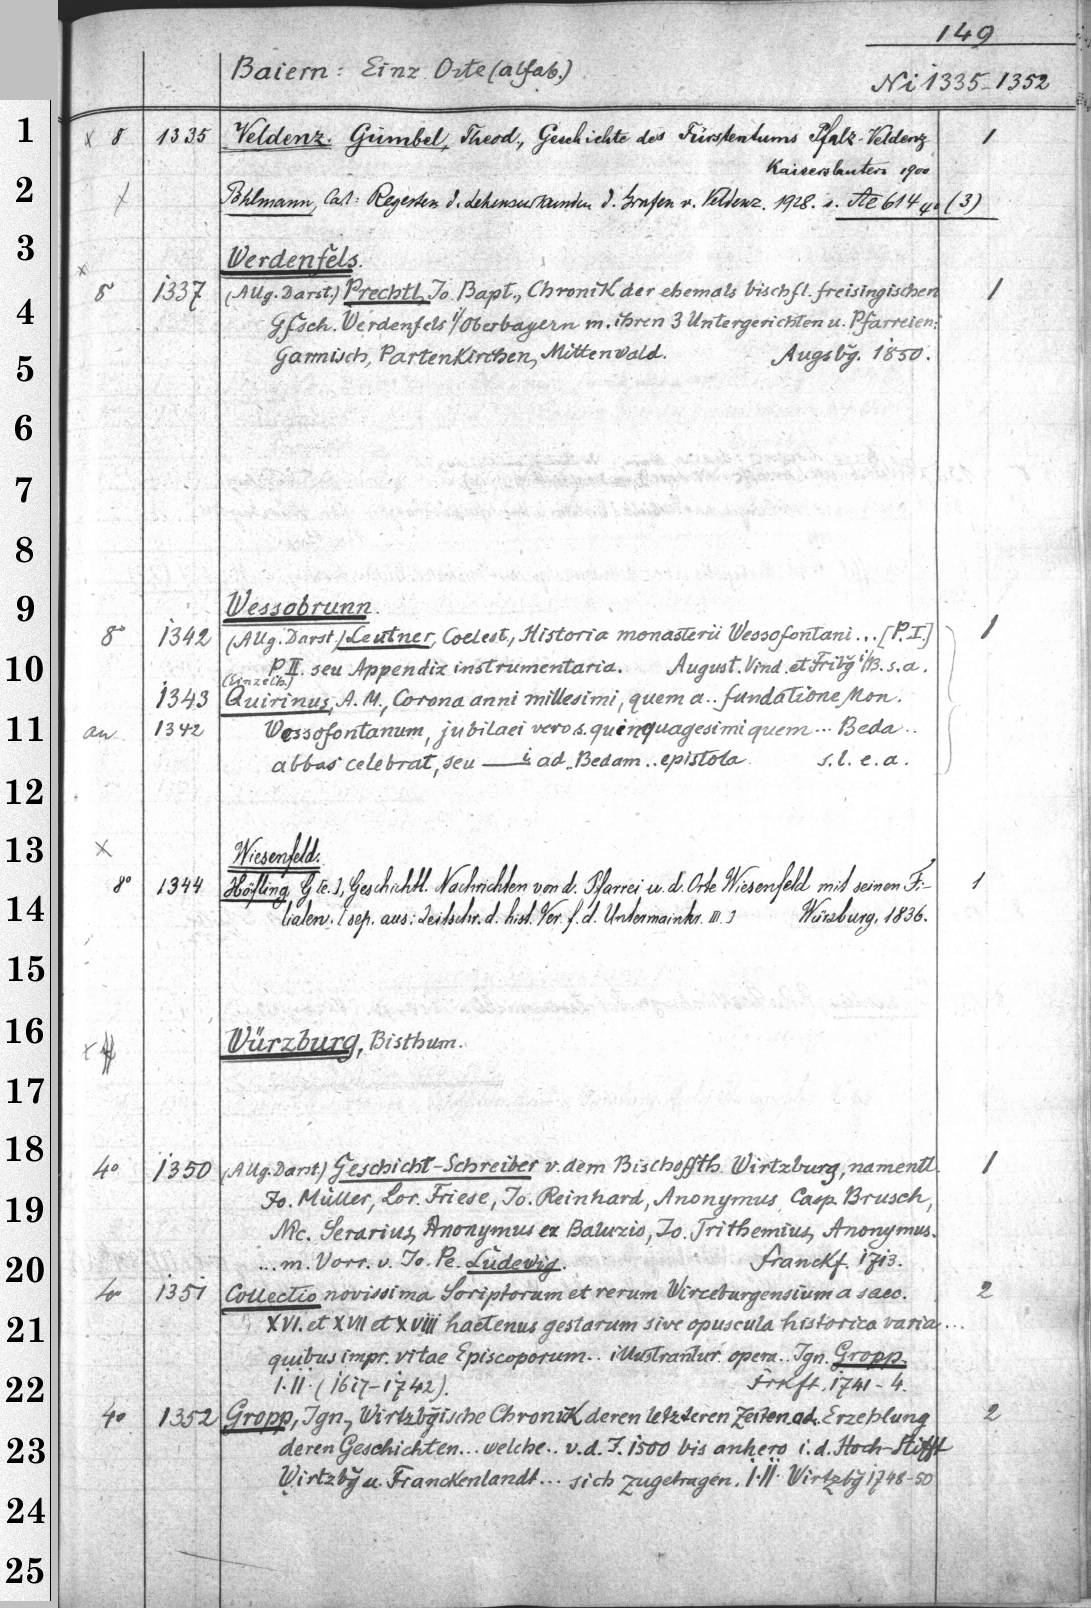 149
Baiern: Einz. Orte (alfab.)
Ni 1335-1352
1
x 8 1335 Veldenz. Gümbel, Theod., Geschichte des Fürstentums Pfalz-Veldenz 1
Kaiserslautern 1900
2
x Pöhlmann, Carl: Regesten d. Lehensurkunden d. Grafen v. Veldenz. 1928. s. Ae 614 4° (3)
3
Werdenfels.
x
8 1337 (Allg. Darst.) Prechtl, Jo. Bapt., Chronik der ehemals bischfl. freisingischen 1
4
Gfsch. Werdenfels i/Oberbayern m. ihren 3 Untergerichten u. Pfarreien:
5
Garmisch, Partenkirchen, Mittenwald. Augsbg. 1850.
6
7
8
9
Wessobrunn.
8° 1342 (Allg. Darst.) Leutner, Coelest., Historia monasterii Wessofontani... [P. I.] 1
10
P II. seu Appendix instrumentaria. August. Vind. et Fribg i/B. s. a.
(Einzelh.)
1343 Quirinus, A. M., Corona anni millesimi, quem a.. fundatione Mon.
11
an 1342 Wessofontanum, jubilaei vero s. quinquagesimi quem... Beda..
abbas celebrat, seu — i ad.. Bedam.. epistola s. l. e. a.
12
13
x Wiesenfeld.
8° 1344 Höfling G[e.], Geschichtl. Nachrichten von d. Pfarrei u. d. Orte Wiesenfeld mit seinen Fi- 1
14
lialen. [sep. aus: Zeitschr. d. hist. Ver. f. d. Untermainkr. III.] Würzburg, 1836.
15
16
x Würzburg, Bisthum.
17
18
4° 1350 (Allg. Darst.) Geschicht-Schreiber v. dem Bischoffth. Wirtzburg, namentl. 1
19
Jo. Müller, Lor. Friese, Jo. Reinhard, Anonymus, Casp. Brusch,
Nic. Serarius, Anonymus ex Baluzio, Jo. Trithemius, Anonymus.
20
... m. Vorr. v. Jo. Pe. Ludewig. Franckf. 1713.
4° 1351 Collectio novissima Scriptorum et rerum Wirceburgensium a saec. 2
21
XVI. et XVII et XVIII hactenus gestarum sive opuscula historica varia...
quibus impr. vitae Episcoporum.. illustrantur. opera.. Ign. Gropp.
22
I. II. (1617-1742). Frkft. 1741-4.
4° 1352 Gropp, Ign., Wirtzbgische Chronik deren letzteren Zeiten od. Erzehlung 2
23
deren Geschichten... welche.. v. d. J. 1500 bis anhero i. d. Hoch-Stifft
Wirtzbg u. Franckenlandt... sich zugetragen. I. II. Wirtzbg 1748-50
24
25